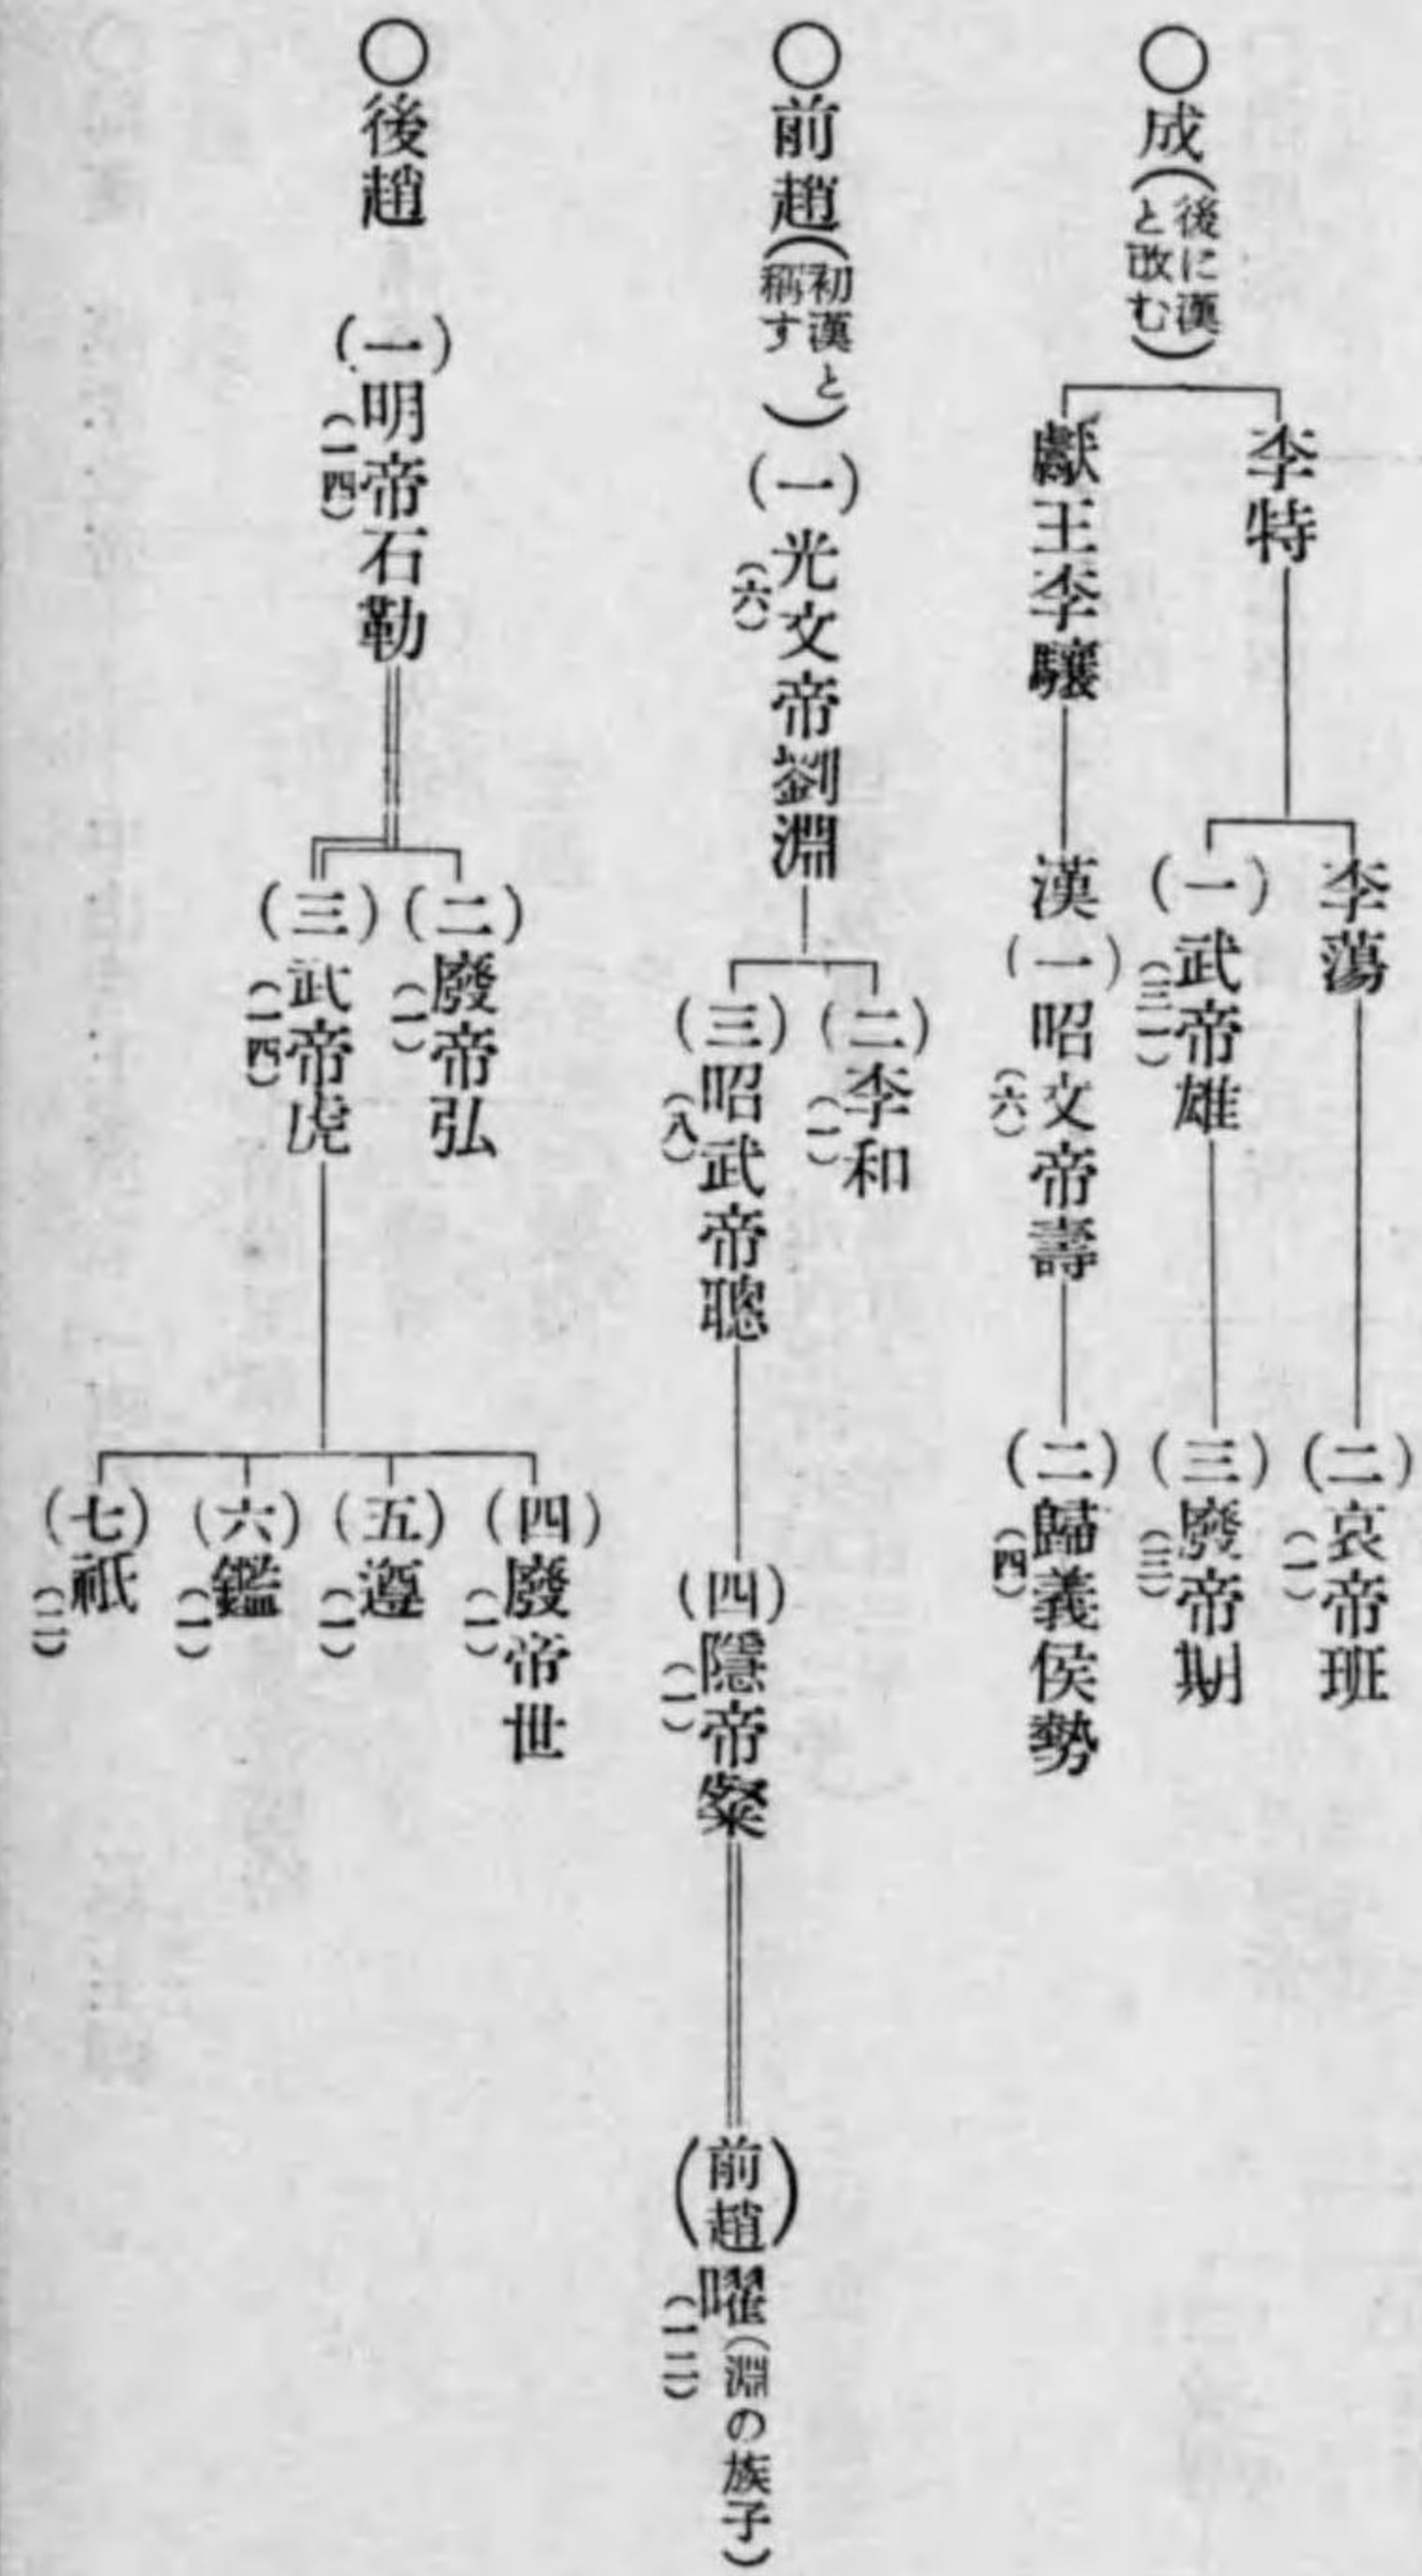 ○成(後に漢と改む)
李特
李蕩
(二)哀帝班
(一)
(一)武帝雄
(三一)
(三)廢帝期
(三)
獻王李驤
漢(一)昭文帝壽
(六)
(二)歸義侯勢
(四)
○前趙(初漢と稱す)
(一)光文帝劉淵
(六)
(二)李和
(一)
(三)昭武帝聰
(八)
(四)隱帝粲
(一)
(前趙)曜(淵の族子)
(一二)
○後趙
(一)明帝石勒
(一四)
(二)廢帝弘
(一)
(三)武帝虎
(一四)
(四)廢帝世
(一)
(五)遵
(一)
(六)鑑
(一)
(七)祇
(二)